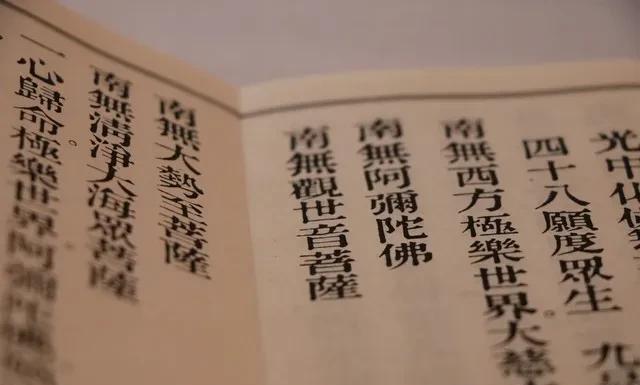 光中化
四十八願度眾生。九
南無西方極樂世界大慈
南無阿彌陀佛
南無觀世音菩薩
南無大勢至菩薩
南無清淨大海眾菩薩
一心歸命。極樂世界阿彌陀佛